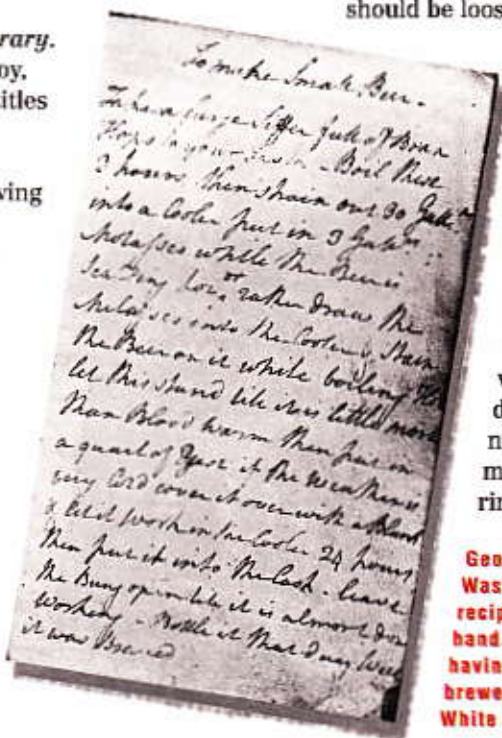 should be loos
rary.
oy.
itles
ving
To make Small Beer.
Take a large Siffer full of Bran
Hops to your Taste - Boil these
3 hours. then strain out 30 Gallns
into a Cooler put in 3 Gallns
Molasses while the Beer is
Scalding hot or rather draw the
Molasses into the Cooler & Strain
the Beer on it while boiling Hot
let this stand till it is little more
than Blood warm then put in
a quart of Yest if the weather is
very Cold cover it over with a Blank
& let it work in the Cooler 24 hours
then put it into the Cask - leave
the Bung open till it is almost done
working - Bottle it that day Week
it was Brewed
w
d
n
m
rin
Geo
Was
recip
hand.
havin
brewe
White